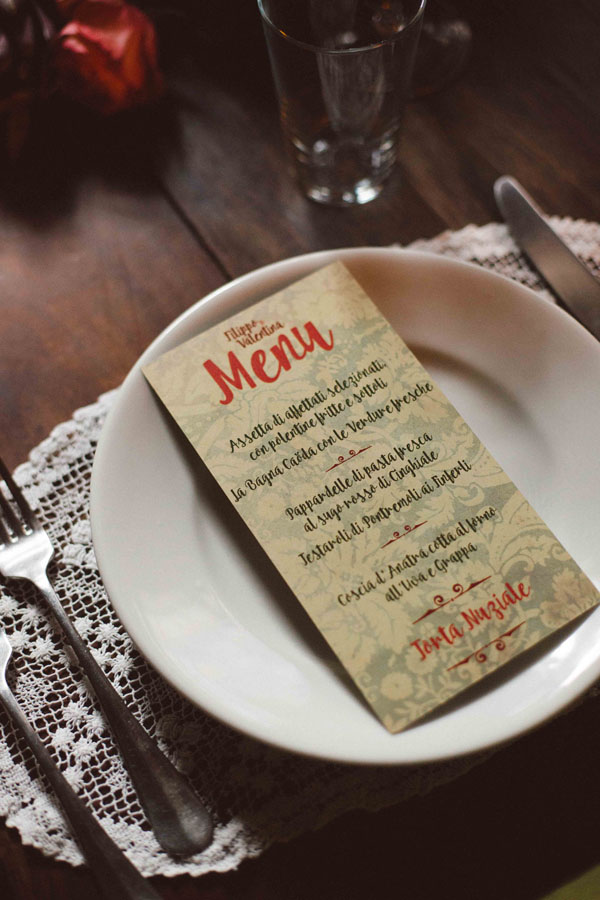 Filippo
Valentina
Menu
Assetta di affettati selezionati
con polentine fritte e sottoli
la Bagna Caöda con le Verdure fresche
Pappardelle di pasta fresca
al sugo rosso di Cinghiale
Testaroli di Pontremoli ai Finferli
Coscia d'Anatra cotta al forno
all'Uva e Grappa
Torta Nuziale